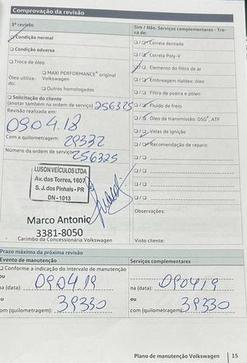 Comprovação da revisão
1ª revisão
Sim / Não: Serviços complementares - Troca de:
Condição normal
Correia dentada
Condição adversa
Correia Poly-V
Troca de óleo
Elemento do filtro de ar
Óleo utiliz.:
MAXI PERFORMANCE original Volkswagen
Embreagem Haldex: óleo
Outros homologados
Filtro de poeira e pólen
Solicitação do cliente
(anotar também na ordem de serviço) 256325
Fluido de freio
Revisão realizada em:
09.04.18
Óleo da transmissão: DSG, ATF
Velas de ignição
Com a quilometragem: 29332
Recomendação de reparo
Número da ordem de serviço: 256325
LUSON VEÍCULOS LTDA
Av. das Torres, 1607
S. J. dos Pinhais - PR
DN - 1013
Marco Antonio
3381-8050
Observações:
Carimbo da Concessionária Volkswagen
Visto cliente:
Prazo máximo da próxima revisão
Evento de manutenção
Serviços complementares
Conforme a indicação do intervalo de manutenção
ou
na (data): 09.04.19
na (data): 09.04.19
ou
ou
com (quilometragem): 39330
com (quilometragem): 39330
Plano de manutenção Volkswagen 15